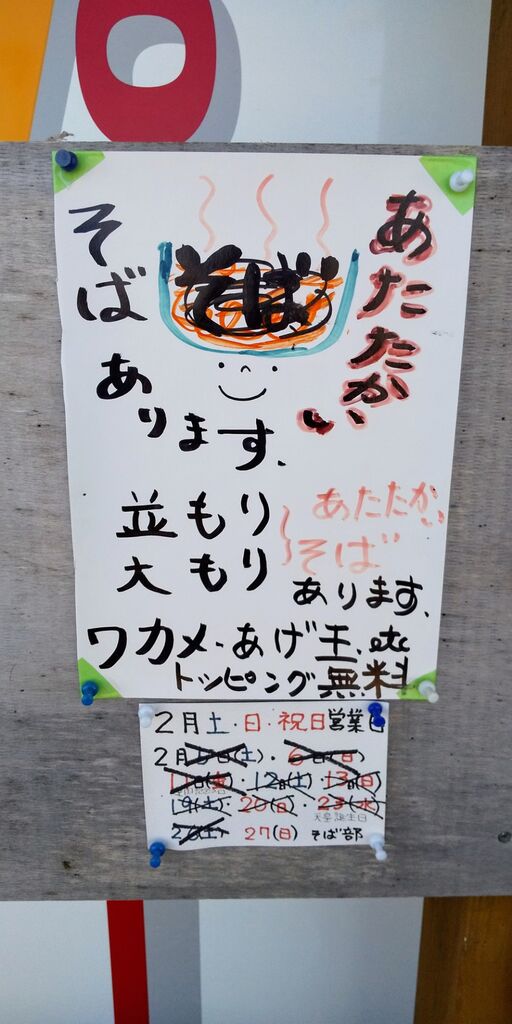 あたたかい
そば
そば
あります.
並もり
大もり
あたたかい
そば
あります.
ワカメ・あげ玉.etc
トッピング無料
2月土・日・祝日営業日
2月5日(土)・6日(日)
11日(金)・12日(土)・13日(日)
19(土)・20(日)・23(水)
天皇誕生日
26(土) 27(日) そば部